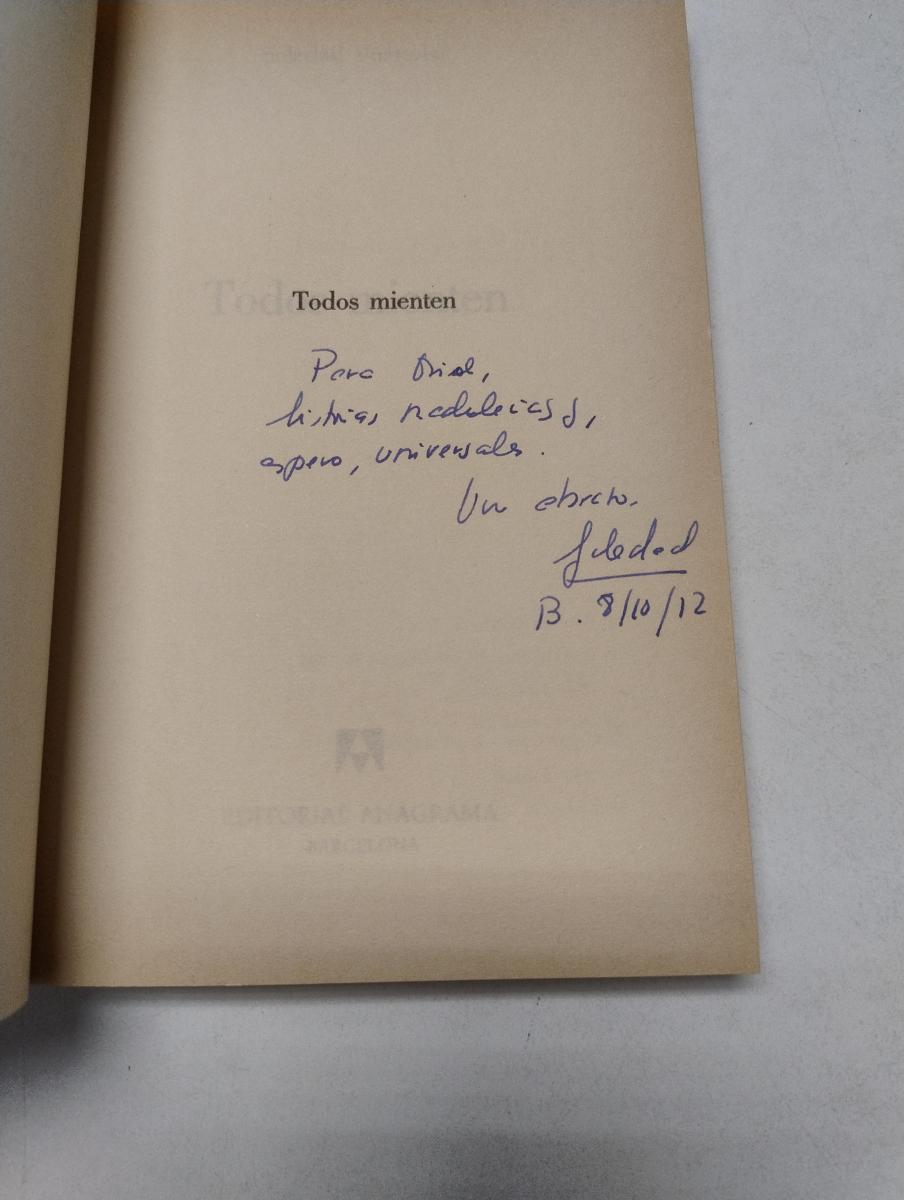 Todos mienten
Para Oriol,
historias madrileñas y,
espero, universales.
Un abrazo.
Soledad
B. 8/10/12
EDITORIAL ANAGRAMA
BARCELONA